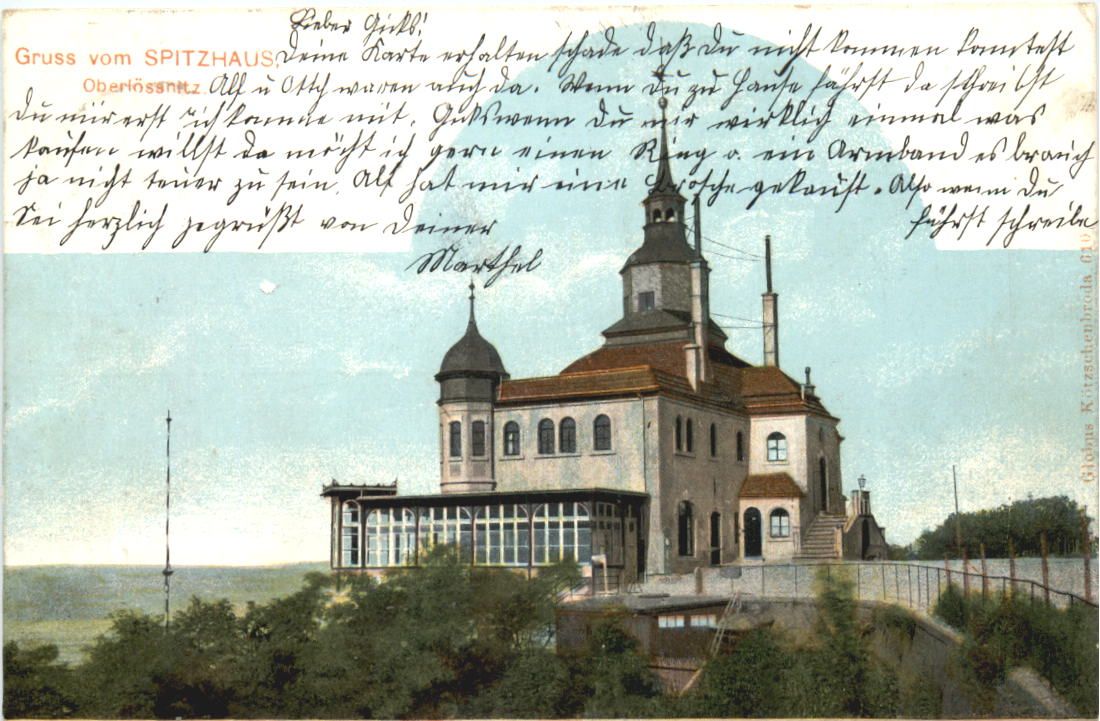 Gruss vom SPITZHAUS.
Oberlössnitz.
Lieber Gicks!
Deine Karte erhalten schade daß Du nicht kommen konntest
Alf u Otth waren auch da. Wenn Du zu Hause fährst da schreibst
Du mir erst ich komme mit. Gicks wenn Du mir wirklich einmal was
kaufen willst da möcht ich gern einen Ring o. ein Armband es brauch
ja nicht teuer zu sein. Alf hat mir eine Brosche gekauft. Also wenn Du
fährst schreibe
Sei herzlich gegrüßt von Deiner
Marthel
Globus Kötzschenbroda 610